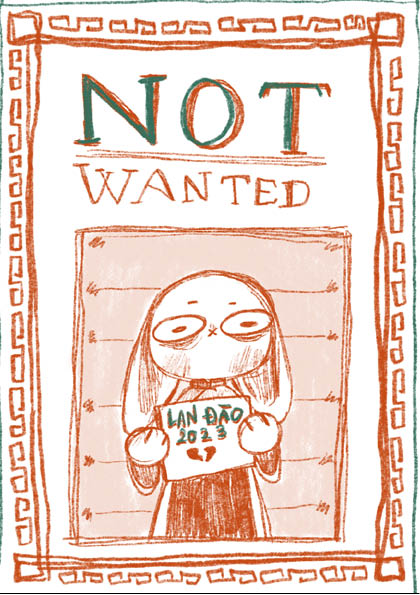 NOT
WANTED
LAN ĐÀO
2023